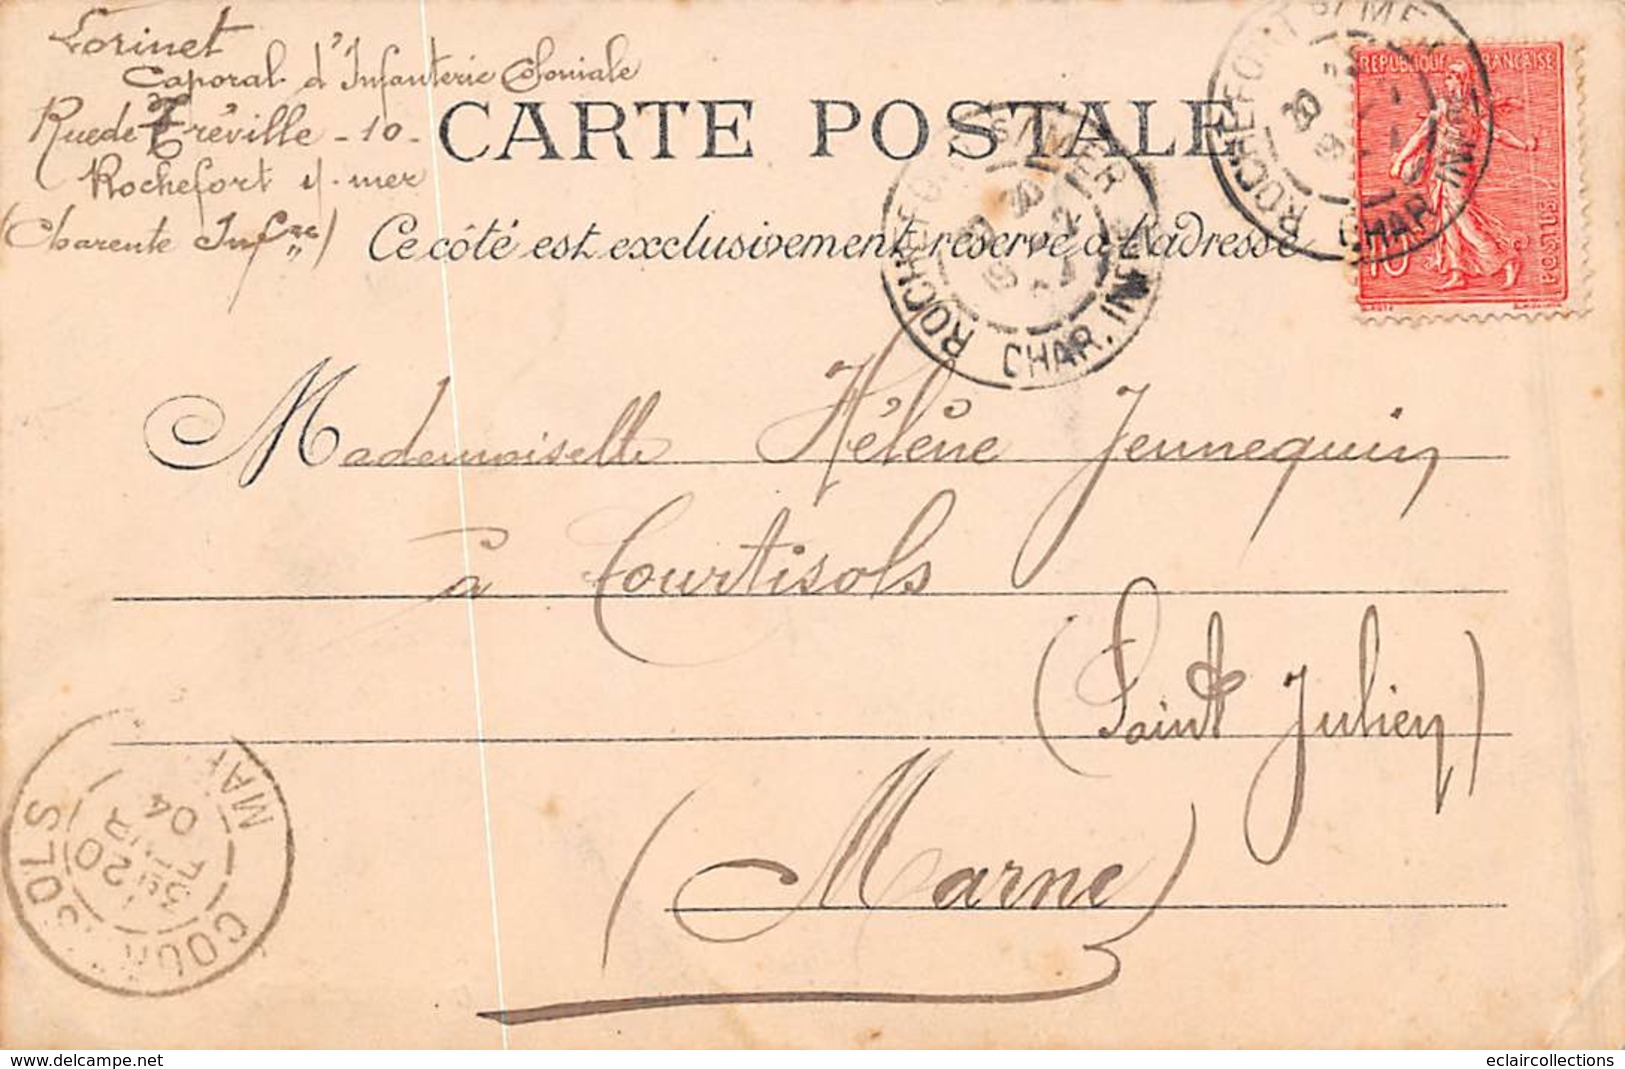 Lorinet
Caporal d'Infanterie Coloniale
Rue de Tréville - 10 -
Rochefort s/ mer
(Charente Infre)
CARTE POSTALE
Ce côté est exclusivement réservé à l'adresse
ROCHEFORT S/MER
CHAR. INF
ROCHEFORT S/ME
CHAR INF
20
REPUBLIQUE FRANÇAISE
10
POSTES
Mademoiselle Hélène Jennequin
à Courtisols
(Saint Julien)
(Marne)
COUR SOLS
MAR
20
04
eclaircollections